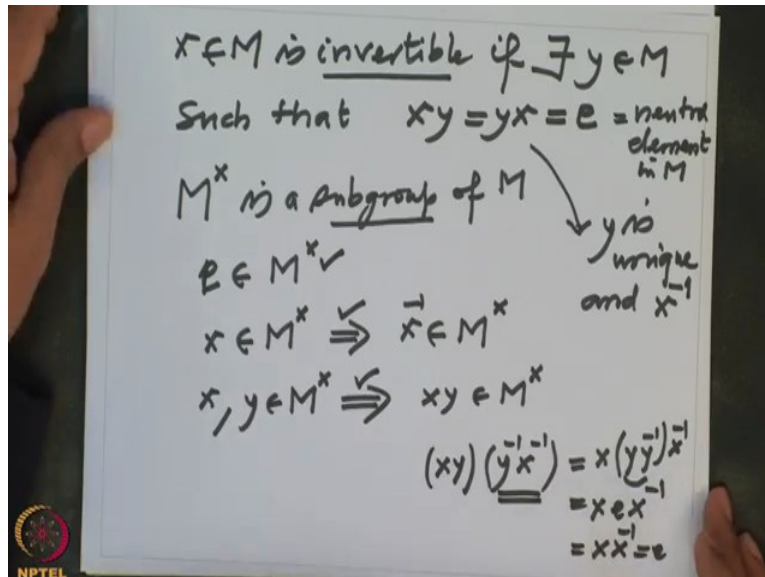 x ∈ M is invertible if ∃ y ∈ M
Such that xy = yx = e = neutral element in M
M^x is a subgroup of M
y is unique and x^-1
e ∈ M^x ✓
x ∈ M^x ⇒ ✓ x^-1 ∈ M^x
x, y ∈ M^x ⇒ ✓ xy ∈ M^x
(xy) (y^-1 x^-1) = x(y y^-1) x^-1
= x e x^-1
= x x^-1 = e
NPTEL